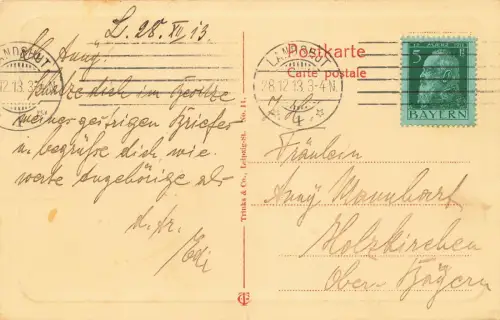 L. 28. XII. 13.
Lb. Anny!
dich im Besitze
meines gestrigen Briefes
u. begrüße dich, wie
werte Angehörige als
d. tr.
Edi
Postkarte
Carte postale
LANDSHUT
28.12.13. 3-4 N.
4.
LANDSHUT
12.13. 3
5
BAYERN
Trinks & Co., Leipzig-St. No. 11.
Fräulein
Anny Mannhart
Holzkirchen
Ober-Bayern